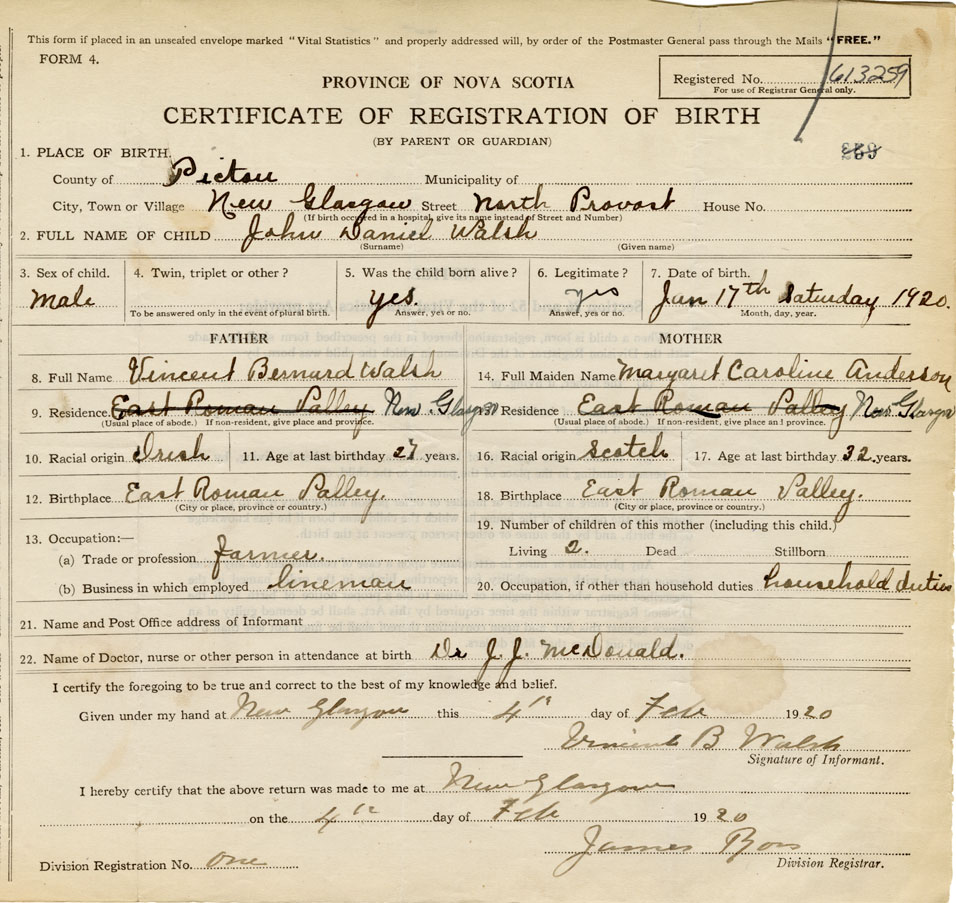 This form if placed in an unsealed envelope marked "Vital Statistics" and properly addressed will, by order of the Postmaster General pass through the Mails "FREE."
FORM 4.
Registered No. 613259
For use of Registrar General only.
PROVINCE OF NOVA SCOTIA
CERTIFICATE OF REGISTRATION OF BIRTH
(BY PARENT OR GUARDIAN)
1. PLACE OF BIRTH.
County of Pictou Municipality of
City, Town or Village New Glasgow Street North Provost House No.
(If birth occurred in a hospital, give its name instead of Street and Number)
2. FULL NAME OF CHILD John Daniel Walsh
(Surname) (Given name)
3. Sex of child. 4. Twin, triplet or other? 5. Was the child born alive? 6. Legitimate? 7. Date of birth.
Male yes. yes Jan 17th Saturday 1920.
To be answered only in the event of plural birth. Answer, yes or no. Answer, yes or no. Month, day, year.
FATHER MOTHER
8. Full Name Vincent Bernard Walsh 14. Full Maiden Name Margaret Caroline Anderson
9. Residence. East Roman Valley New Glasgow 15. Residence East Roman Valley New Glasgow
(Usual place of abode.) If non-resident, give place and province. (Usual place of abode.) If non-resident, give place and province.
10. Racial origin Irish 11. Age at last birthday 27 years. 16. Racial origin Scotch 17. Age at last birthday 32 years.
12. Birthplace East Roman Valley. 18. Birthplace East Roman Valley.
(City or place, province or country.) (City or place, province or country.)
19. Number of children of this mother (including this child.)
13. Occupation:—
(a) Trade or profession Farmer. Living 2. Dead Stillborn
(b) Business in which employed lineman 20. Occupation, if other than household duties household duties
21. Name and Post Office address of Informant
22. Name of Doctor, nurse or other person in attendance at birth Dr J. J. McDonald.
I certify the foregoing to be true and correct to the best of my knowledge and belief.
Given under my hand at New Glasgow this 4th day of Feb 1920
Vincent B Walsh
Signature of Informant.
I hereby certify that the above return was made to me at New Glasgow
on the 4th day of Feb 1920
James Ross
Division Registration No. one Division Registrar.